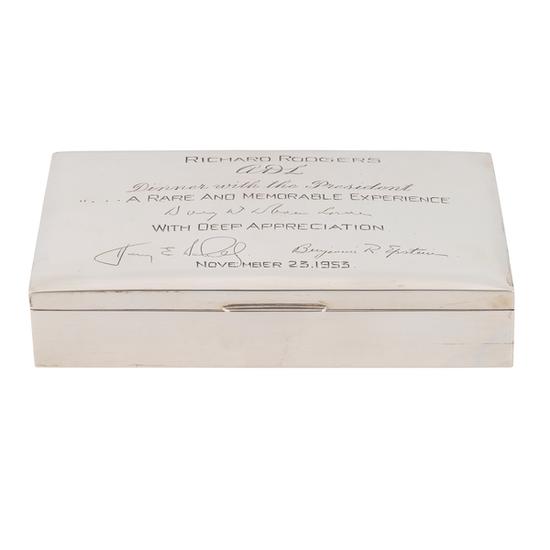 RICHARD RODGERS
ADL
Dinner with the President
"...A RARE AND MEMORABLE EXPERIENCE
WITH DEEP APPRECIATION
Benjamin R. Epstein
NOVEMBER 23, 1953